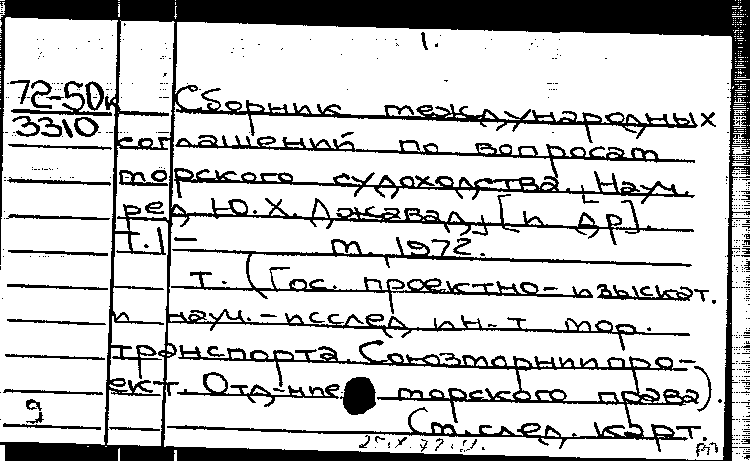 1.
72-50к
3310
Сборник международных
соглашений по вопросам
морского судоходства. [Науч.
ред. Ю.Х. Джавад] [и др].
Т.1 – М., 1972.
т. (Гос. проектно-изыскат.
и науч.-исслед. ин-т мор.
транспорта. Союзморниипро-
ект. Отд-ние морского права).
9
См. след. карт.
рп